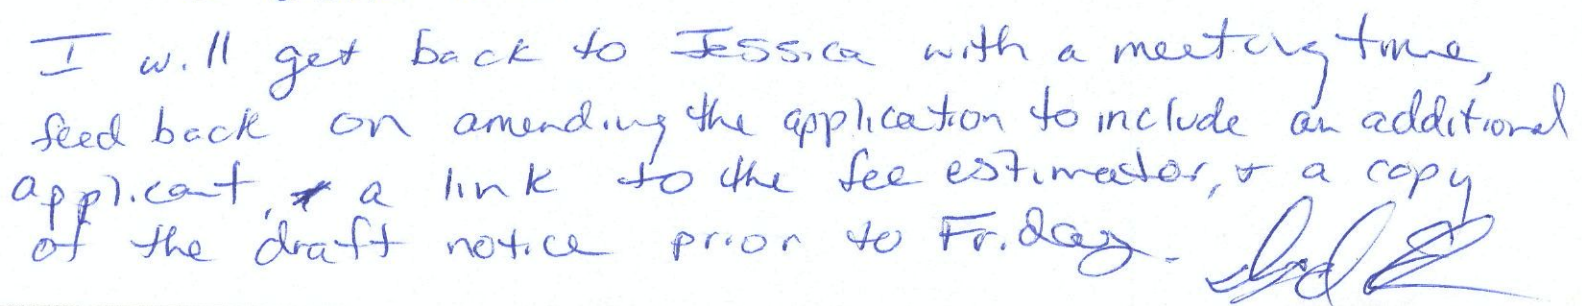 I will get back to Jessica with a meeting time,
feed back on amending the application to include an additional
applicant, a link to the fee estimator, & a copy
of the draft notice prior to Friday.